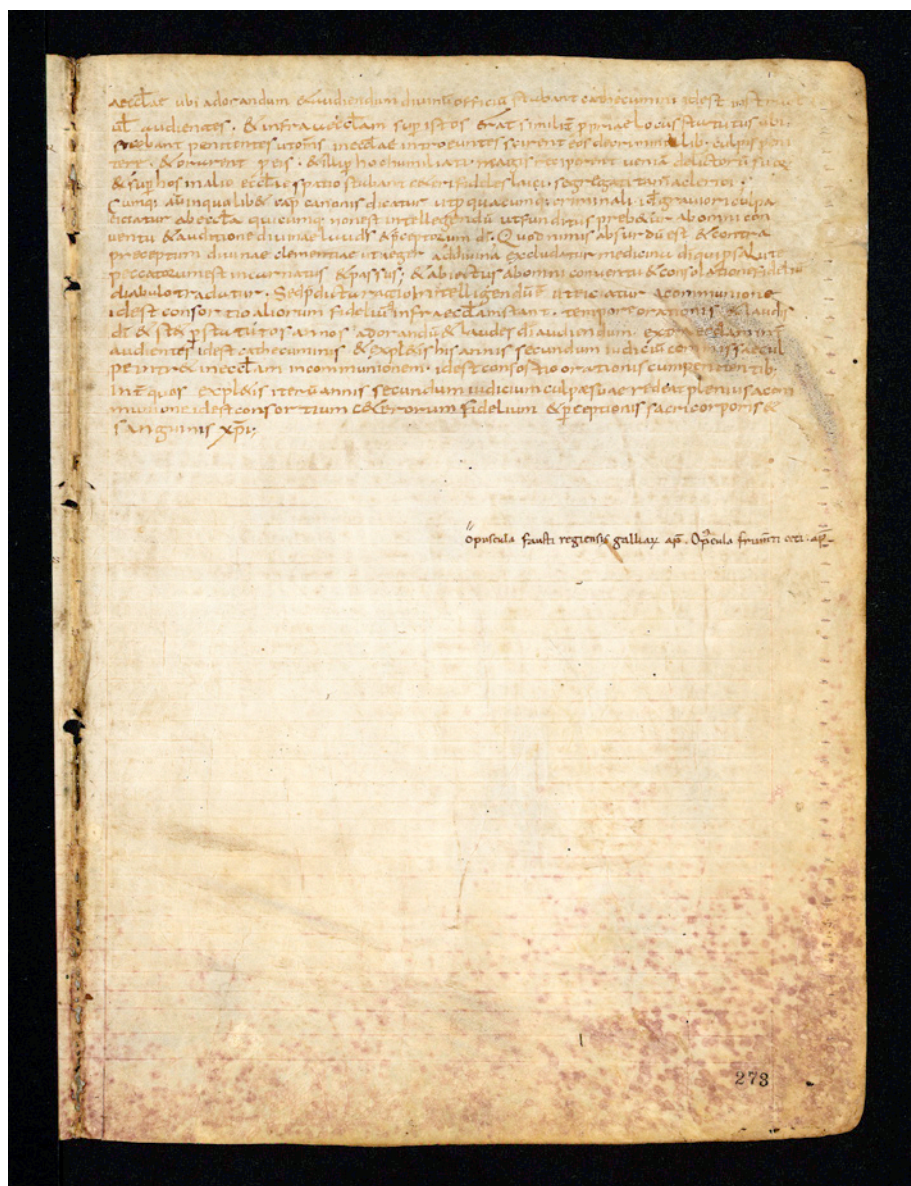 aeccłae ubi adorandum & audiendum divinū officiū stabant cathecumini idest
uł audientes . & infra aeccłam sup istos erat similit ppriae locus statutus ubi
stabant penitentes ut om̄s in eccłae introeuntes scirent eos decriminalib; culpis peni
tere . & orarent p eis . & sup hos humiliati magis reciperent veniā delictorū suoꝝ
& sup hos in alio eccłe spatio stabant ceteri fideles laici . segregati tam̄ a clericis ;
Cumq; aū in qualib& cap canonis dicatur ut p quacumq; criminali id gravioris culpa
eiciatur ab eccła quicumq; non est intellegendū ut funditus prohibe&ur ab omni con
ventu & auditione divinae laudis & p̄ceptorum dī . Quod nimis absurdū est & contra
preceptum divinae clementiae ut aeger ad divina excludatur medicina di qui p salute
peccatorum est incarnatus & passus ; & abiectus ab omni conventu & consolatione fideliū
diabulo tradatur . Sed p dicta ratio intelligendū ē ut eiciatur a communione
idest consortio aliorum fideliū infra eccłam stant . tempore orationis & laudis
dī & st& p statutos annos adorandū & laudes dī audiendum . extra eccłam int̄
audientes idest cathecuminos & expl&is his annis secundum iudiciū commissae cul
pe intr& in eccłam in communionem . idest consortio orationis cum penitentib;
Int̄ quos expl&is iterū annis secundum iudicium culpae suae redeat plenius a com
munione idest consortium c&erorum fidelium & p̄ceptionis sacri corporis &
sanguinis xp̄i ;
opuscula fausti regiensis galliaꝝ
273